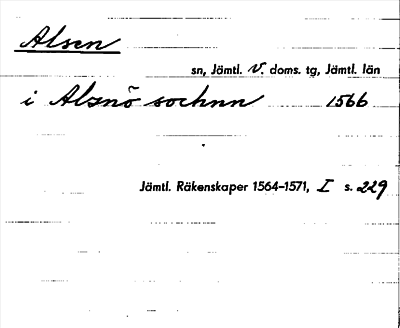 Alsen
sn, Jämtl. V. doms. tg, Jämtl. län
i Alsnö sochnn 1566
Jämtl. Räkenskaper 1564–1571, I s. 229